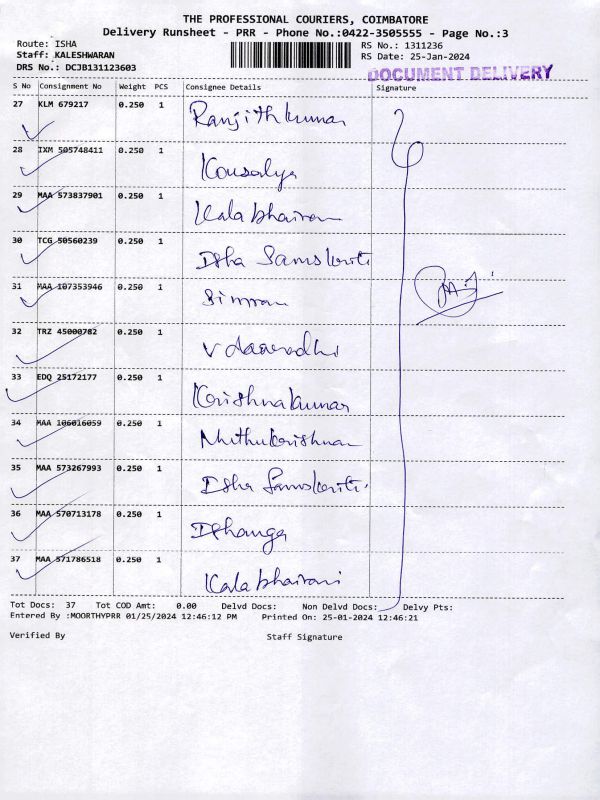 THE PROFESSIONAL COURIERS, COIMBATORE
Delivery Runsheet - PRR - Phone No.:0422-3505555 - Page No.:3
Route: ISHA RS No.: 1311236
Staff: KALESHWARAN RS Date: 25-Jan-2024
DRS No.: DCJB131123603
DOCUMENT DELIVERY
S No Consignment No Weight PCS Consignee Details Signature
27 KLM 679217 0.250 1 Ranjithkumar
28 IXM 505748411 0.250 1 Kousalya
29 MAA 573837901 0.250 1 Kalabhairav
30 TCG 50560239 0.250 1 Isha Samskriti
31 MAA 107353946 0.250 1 Simran
32 TRZ 45000782 0.250 1 V
33 EDQ 25172177 0.250 1 Krishnakumar
34 MAA 106016059 0.250 1 Muthukrishnan
35 MAA 573267993 0.250 1 Isha Samskriti.
36 MAA 570713178 0.250 1
37 MAA 571786518 0.250 1 Kalabhairavi
Tot Docs: 37 Tot COD Amt: 0.00 Delvd Docs: Non Delvd Docs: Delvy Pts:
Entered By :MOORTHYPRR 01/25/2024 12:46:12 PM Printed On: 25-01-2024 12:46:21
Verified By Staff Signature